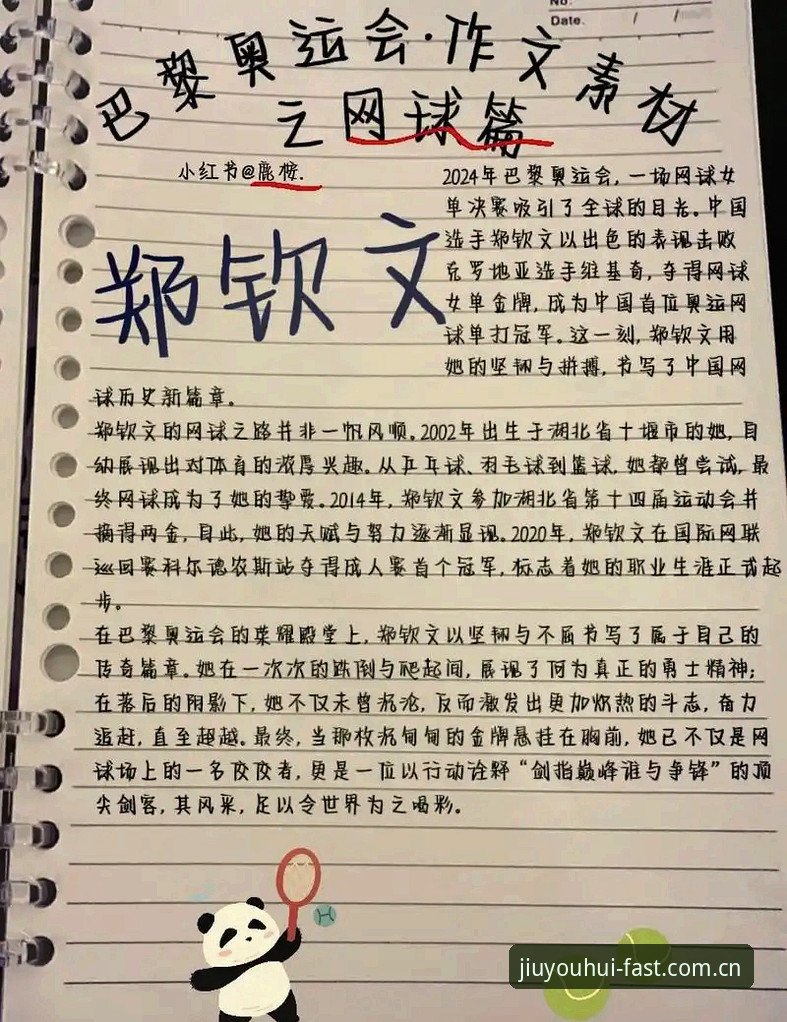 No.
Date.
巴黎奥运会·作文素材
之网球篇
小红书@鹿榨.
郑钦文
2024年巴黎奥运会,一场网球女
单决赛吸引了全球的目光。中国
选手郑钦文以出色的表现击败
克罗地亚选手维基奇,夺得网球
女单金牌,成为中国首位奥运网
球单打冠军。这一刻,郑钦文用
她的坚韧与拼搏,书写了中国网
球历史新篇章。
郑钦文的网球之路并非一帆风顺。2002年出生于湖北省十堰市的她,自
幼展现出对体育的浓厚兴趣。从乒乓球、羽毛球到篮球,她都曾尝试,最
终网球成为了她的挚爱。2014年,郑钦文参加湖北省第十四届运动会并
摘得两金,自此,她的天赋与努力逐渐显现。2020年,郑钦文在国际网联
巡回赛科尔德农斯站夺得成人赛首个冠军,标志着她的职业生涯正式起
步。
在巴黎奥运会的荣耀殿堂上,郑钦文以坚韧与不屈书写了属于自己的
传奇篇章。她在一次次的跌倒与爬起间,展现了何为真正的勇士精神;
在落后的阴影下,她不仅未曾沉沦,反而激发出更加炽热的斗志,奋力
追赶,直至超越。最终,当那枚沉甸甸的金牌悬挂在胸前,她已不仅是网
球场上的一名佼佼者,更是一位以行动诠释“剑指巅峰谁与争锋”的顶
尖剑客,其风采,足以令世界为之喝彩。
jiuyouhui-fast.com.cn